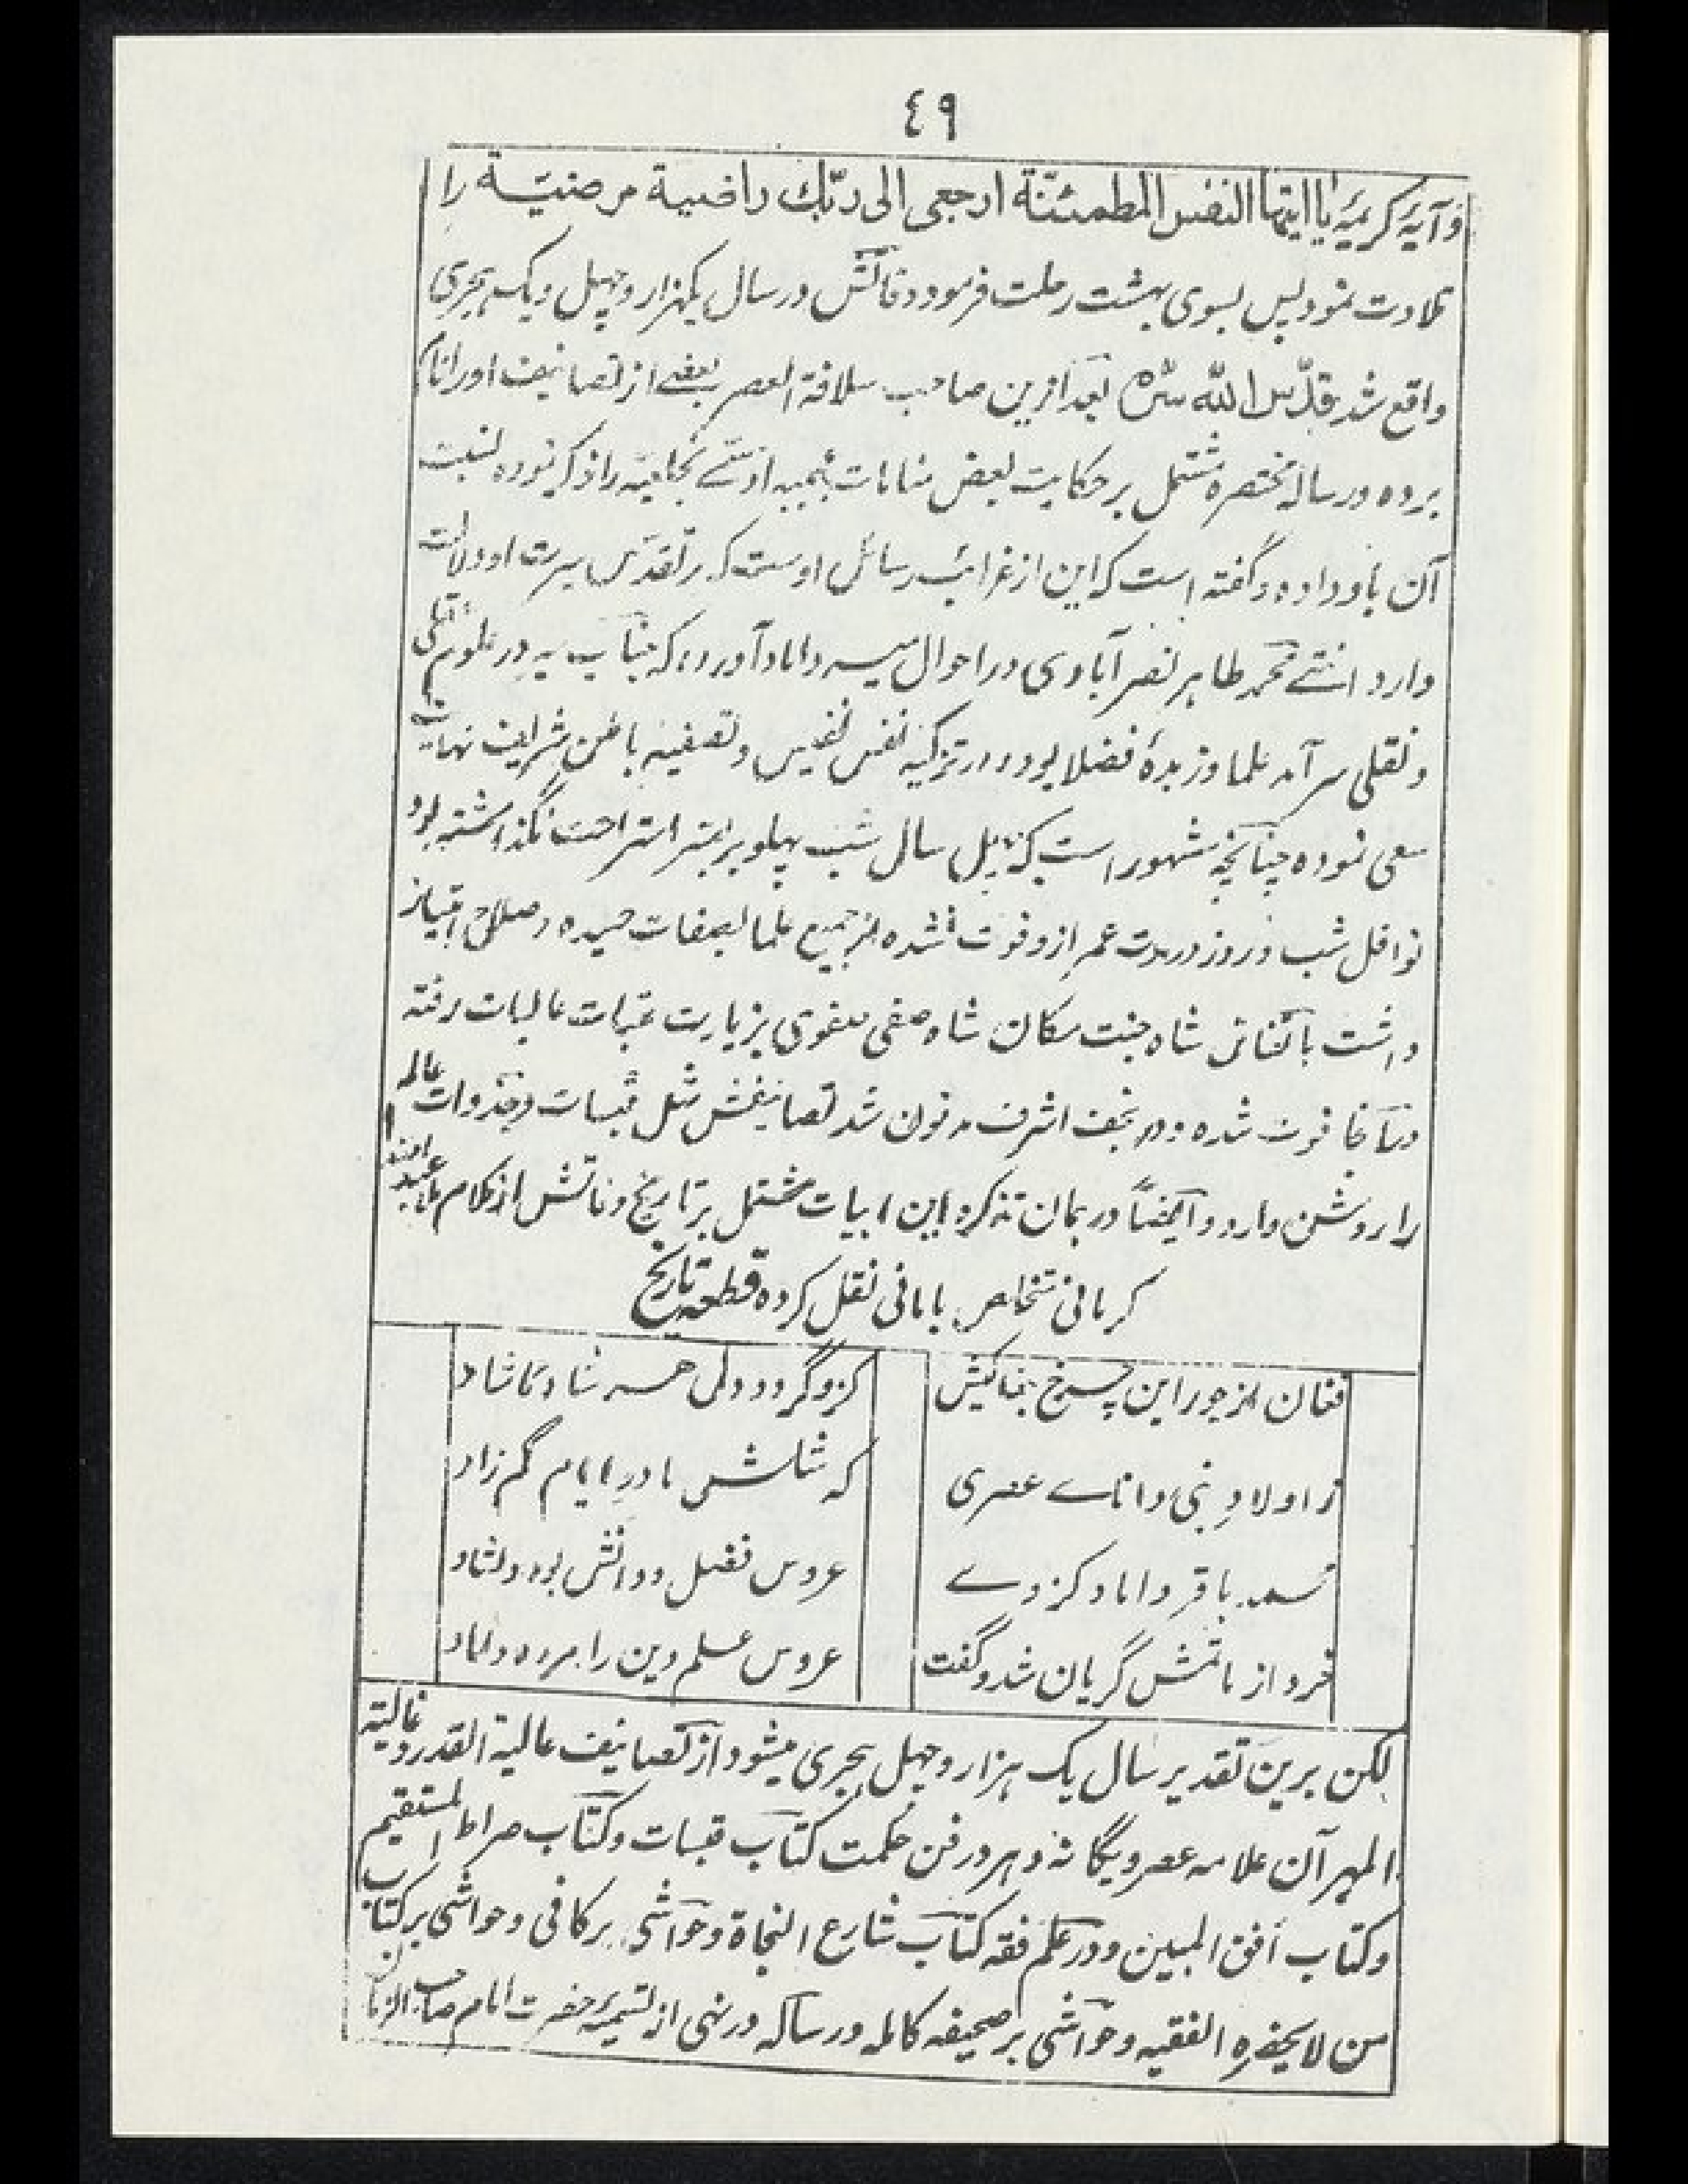 ٤٩
وآیۀ کریمۀ یا ایتها النفس المطمئنّة ارجعی الی ربّك راضیة مرضیّة را
تلاوت نمود پس بسوی بهشت رحلت فرمود وفاتش در سال یکهزار و چهل و یک هجری
واقع شد قدّس اللّه سرّه بعد ازین صاحب سلافة العصر بعضے از تصانیف او را نام
برده و رساله مختصره مشتمل بر حکایت بعض منامات عجیبه را ذکر نموده نسبت
آن باو داده و گفته است که این از غرائب رسائل اوست که بر تقدّس سیرت او دلالت
دارد انتهے محمد طاهر نصرآبادی در احوال میر داماد آورده که جناب میر در علوم عقلی
و نقلی سرآمد علما و زبدهٔ فضلا بود و در تزکیه نفس نفیس و تصفیه باطن شریف نهایت
سعی نموده چنانچه مشهور است که چهل سال شب پهلو بر بستر استراحت نگذاشته بود
نوافل شب و روز در مدت عمر ازو فوت نشده از جمیع علما بصفات حمیده و صلاح امتیاز
داشت باتفاق شاه جنت مکان شاه صفی صفوی بزیارت عتبات عالیات رفته
در آنجا فوت شده و در نجف اشرف مدفون شد تصانیفش مثل قبسات و جذوات عالم
را روشن دارد و ایضاً در همان تذکره این ابیات مشتمل بر تاریخ وفاتش از کلام ملا عبد الله
کرمانی متخلص بامانی نقل کرده قطعه تاریخ
فغان از جور این چرخ جفاکیش کزو گردد دل هر شاد ناشاد
ز اولاد نبی دانائے عصری که مثلش مادر ایام کم زاد
محمد باقر داماد کزوے عروس فضل و دانش بود دلشاد
خرد از ماتمش گریان شد و گفت عروس علم دین را مرده داماد
لکن برین تقدیر سال یک هزار و چهل هجری میشود از تصانیف عالیة القدر و غالیة
المهر آن علامه عصر و یگانه دهر در فن حکمت کتاب قبسات و کتاب صراط المستقیم
و کتاب افق المبین و در علم فقه کتاب شارع النجاة و حواشی بر کافی و حواشی بر کتاب
من لا یحضره الفقیه و حواشی بر صحیفه کامله و رساله در نهی از تسمیۀ حضرت امام صاحب الزمان